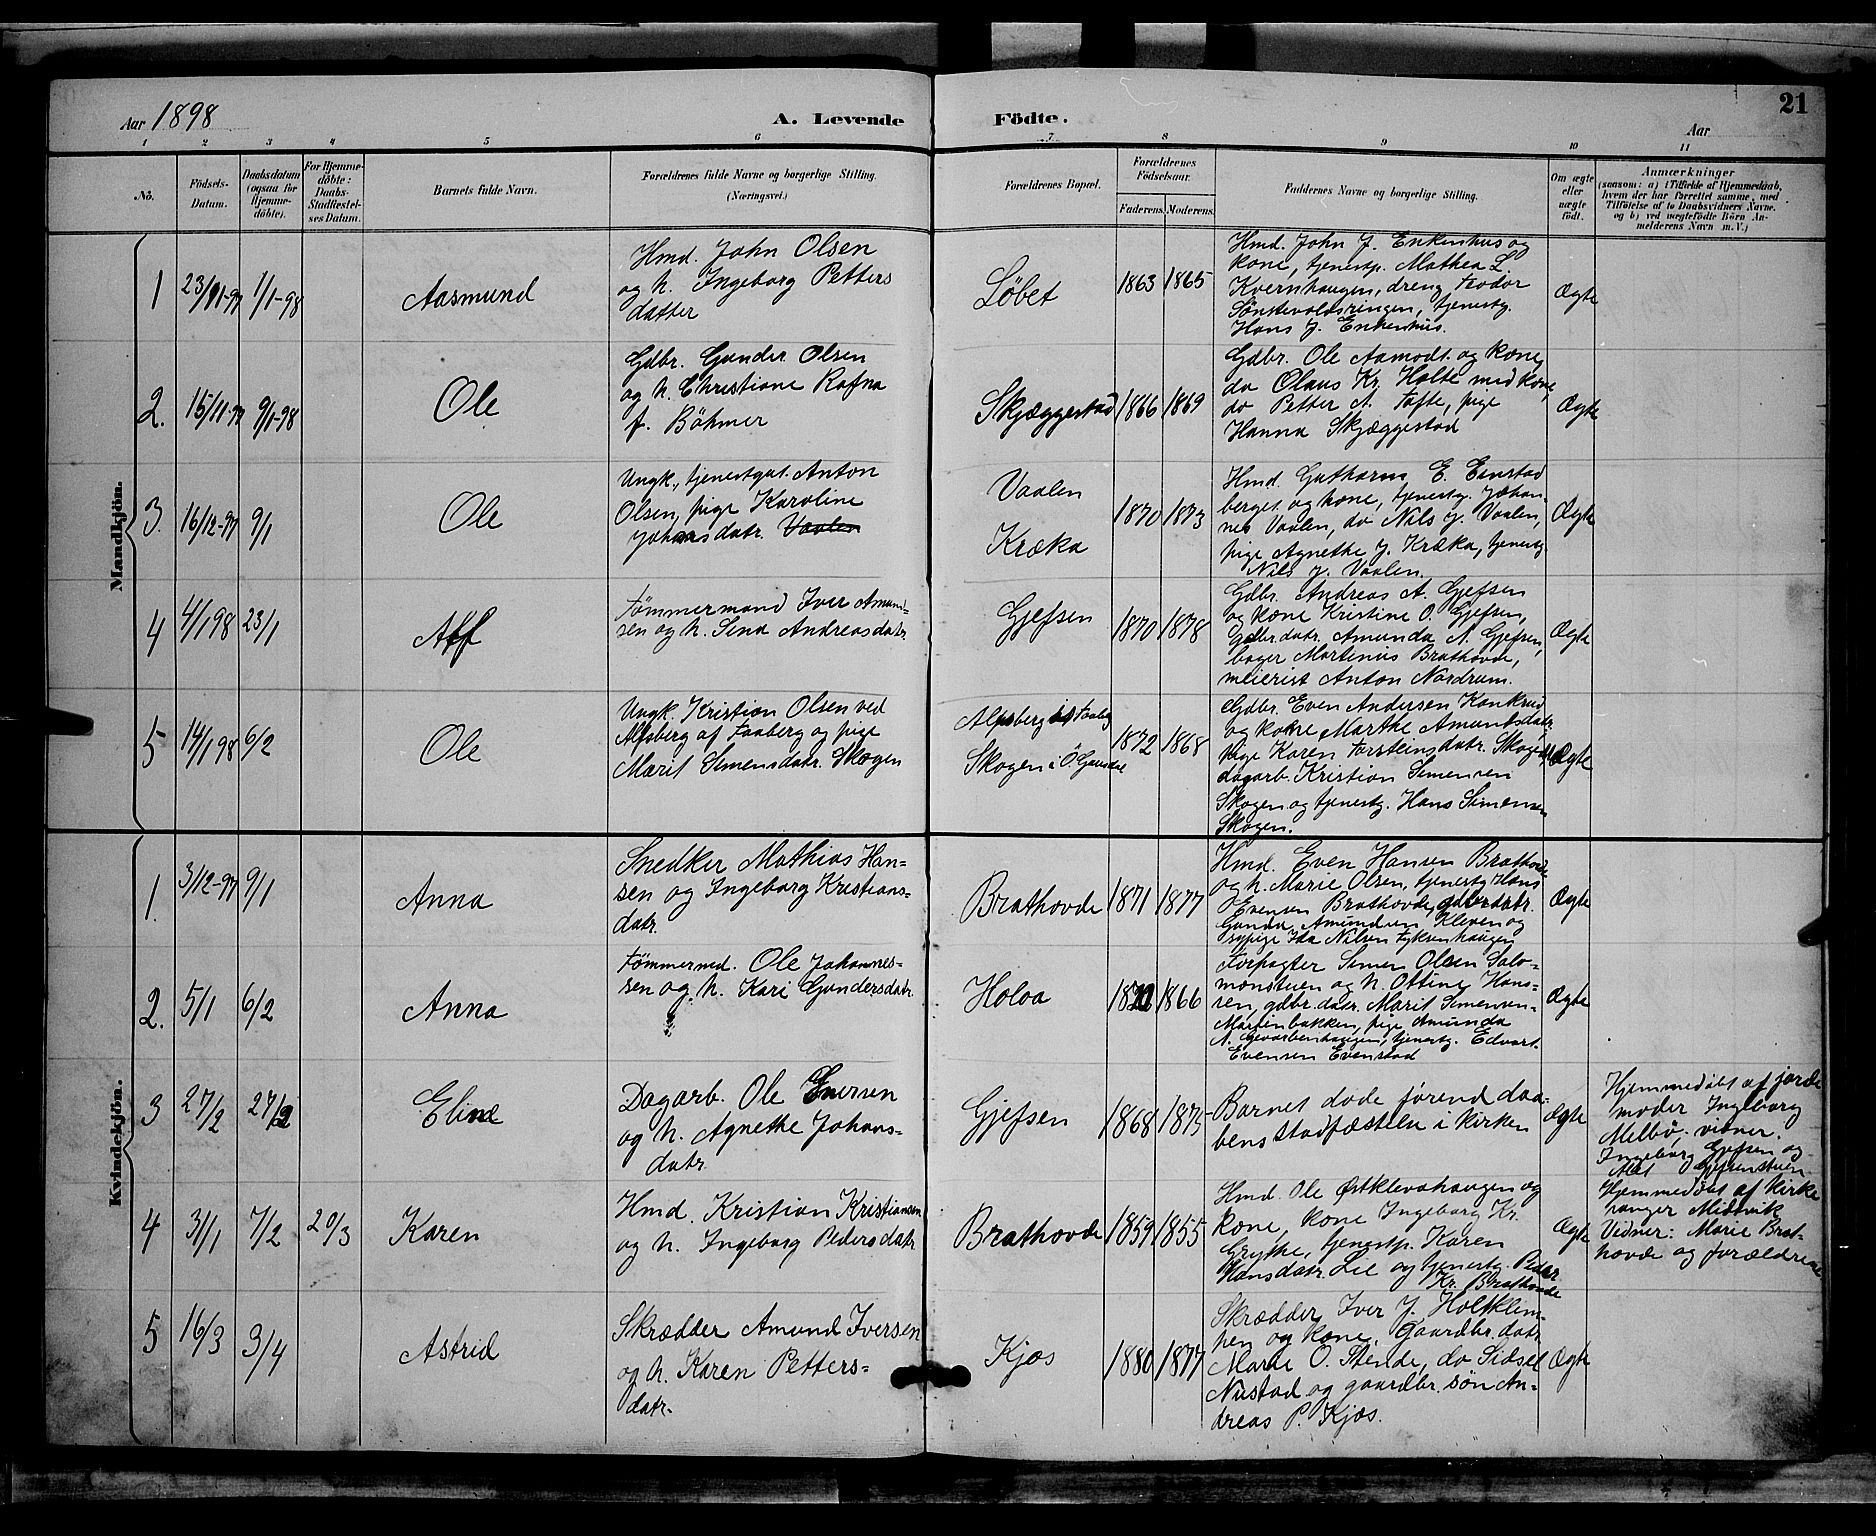 Aar 1898
A. Levende Födte.
21
Aar
1 2 3 4 5 6 7 8 9 10 11
No.
Födsels-
Datum.
Daabsdatum
(ogsaa for
Hjemme-
döbte).
For Hjemme-
döbte:
Daabs-
Stadfæstel-
ses Datum.
Barnets fulde Navn.
Forældrenes fulde Navne og borgerlige Stilling.
(Næringsvei.)
Forældrenes Bopæl.
Forældrenes
Födselsaar.
Faderens. Moderens.
Faddernes Navne og borgerlige Stilling.
Om ægte
eller
uægte
födt.
Anmærkninger
(saasom: a) i Tilfælde af Hjemmedaab,
hvem der har forrettet samme, med
Tilföielse af to Daabsvidners Navne,
og b) ved uægtefödte Börn An-
melderens Navn m. V.)
Mandkjön.
1 23/11-97 1/1-98 Aasmund
Hmd. John Olsen
og h. Ingeborg Petters
datter
Løbet 1863 1865
Hmd. John J. Enkenhus og
kone, tjenestp. Mathea L.
Kvernhaugen, dreng Teodor
Sönstevoldsringen, tjenestg.
Hans J. Enkenhus.
Ægte
2. 15/11-97 9/1-98 Ole
Gdbr. Gunder Olsen
og h. Christiane Rafna
f. Böhmer
Skjæggestad 1866 1869
Gdbr. Ole Aamodt og kone,
do Olaus Kr. Holte med kone,
do Petter A. Tofte, pige
Hanna Skjæggestad
Ægte
3. 16/12-97 9/1 Ole
Ungk., tjenestgut. Anton
Olsen, pige Karoline
Johansdatr. Vaalen
Vaalen
Kræka
1870 1873
Hmd. Guthorm E. Enstad
berget og kone, tjenestg. Johan-
nes Vaalen, do Nils J. Vaalen,
pige Agnethe J. Kræka, tjenestg.
Nils J. Vaalen.
Ægte
4 4/1 98 23/1 Alf
Tömmermand Iver Amund-
sen og h. Sina Andreasdatr.
Gjefsen 1870 1878
Gdbr. Andreas A. Gjefsen
og kone Kristine O. Gjefsen,
Gdbr.datr. Amunda A. Gjefsen,
bager Martinus Brathovde,
meierist Anton Nordrum.
Ægte
5 14/1 98 6/2 Ole
Ungk. Kristian Olsen ved
Alfsberg af Faaberg og pige
Marit Simensdatr. Skogen
Alfsberg i Faaberg
Skogen i Ö. Gausdal
1872 1868
Gdbr. Even Andersen Kankrud
og kone Marthe Amundsdatr,
pige Karen Torsteinsdatr. Skogen,
dagarb. Kristian Simensen
Skogen og tjenestg. Hans Simensen
Skogen.
Ægte
Kvindekjön.
1. 3/12-97 9/1 Anna
Snedker Mathias Han-
sen og Ingeborg Kristians-
datr.
Brathovde 1871 1877
Hmd. Even Hansen Brathovde
og h. Marie Olsen, tjenestg. Hans
Evensen Brathovde, gdbr.datr.
Gunda Amundsen Kleven og
sypige Ida Nilsen Fyksenhaugen
Ægte
2. 5/1 6/2 Anna
Tömmermd. Ole Johannes-
sen og h. Kari Gundersdatr.
Holoa 1866
Forpagter Simen Olsen Salo-
monstuen og h. Ottine Han-
sen, gdbr.datr. Marit Simensen
Martinbakken, pige Amunda
tjenestg. Edvart
Evensen Evenstad
Ægte
3 27/2 27/2 Eline
Dagarb. Ole Iversen
og h. Agnethe Johans-
datr.
Gjefsen 1868 1875
Barnet döde förend daa-
bens stadfæstelse i kirken
Ægte
Hjemmedöbt af jorde
moder Ingeborg
Melbö. vidner.
Ingeborg Gjefsen og
Gjefsenstuen
4 3/1 7/2 20/3 Karen
Hmd. Kristian Kristiansen
og h. Ingeborg Pedersdatr
Brathovde 1859 1855
Hmd. Ole Østklevahaugen og
kone, kone Ingeborg Kr.
Grythe, tjenestp. Karen
Hansdatr. Lie og tjenestg. Peder
Kr. Brathovde
Ægte
Hjemmedöbt af kirke
sanger Midtvik
Vidner: Marie Brat-
hovde og forældrene
5 16/3 3/4 Astrid
Skrædder Amund Iversen
og h. Karen Petters-
datr.
Kjos 1880 1877
Skrædder Iver J. Holtklem-
pen og kone, gaardbr.datr
Marie O. Stende, do Sidsel
Nustad og gaardbr. sön An-
dreas P. Kjos.
Ægte